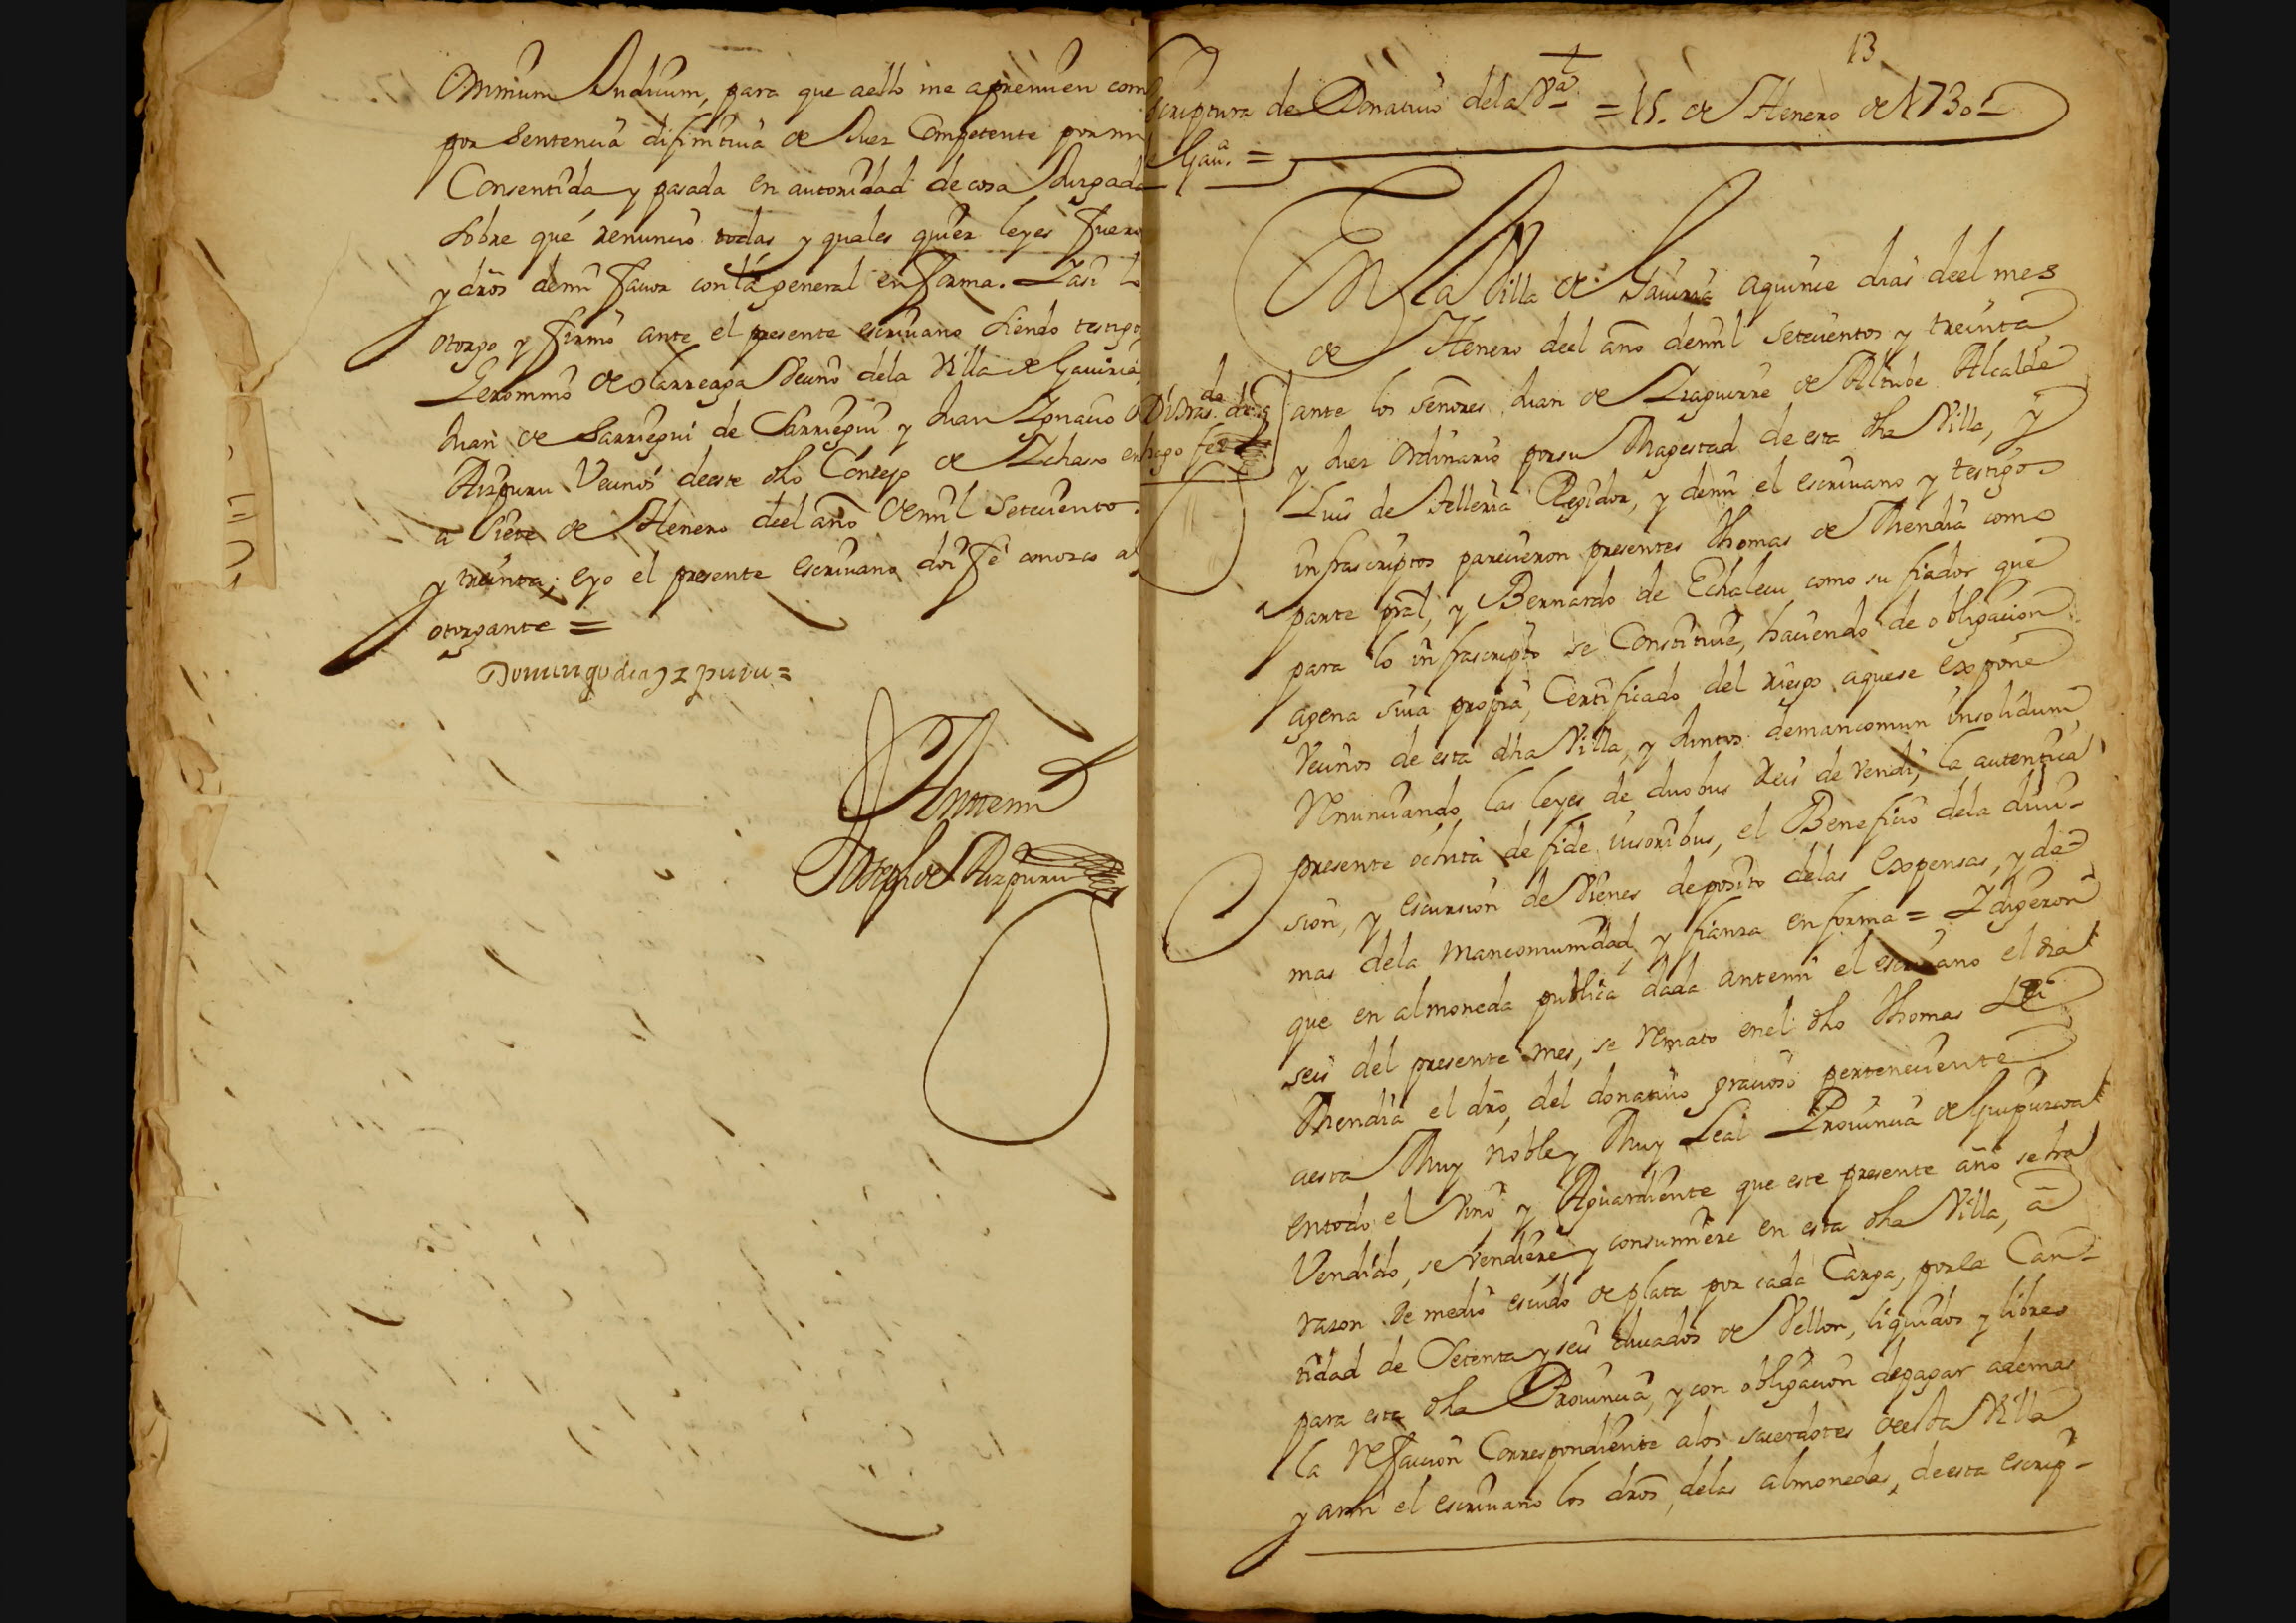 Omnium Iudicum, para que aello me apremien com
por Sentencia difinitiua de Juez Competente por mi
Consentida y pasada en autoridad de cosa Jusgada
sobre que renuncio todas y quales quier leyes fuero
y dr̃os demi fauor con la general en forma. Y asi lo
otorgo y firmo ante el presente escriuano siendo testigo
Geronimo de Olarreaga Vecino dela Villa de Gauiria,
Juan de Sarriegui de Sarriegui y Juan Ygnacio
Aizpuru Vecinos deeste dho Concejo de Ychaso en
a siete de Henero deel año demil Setecientos
y treinta; eyo el presente escriuano doi fe conozco al
otorgante =
Domingo de Aizpuru =
Antemi
Joseph de Aizpuru
13
Scriptura de Donatiuo dela Va = 15. de Henero de 1730
de Gaua. =
En La Villa de Gauiria aquince dias deel mes
de Henero deel año demil setecientos y treinta
ante los señores Juan de Yraguirre de Altube Alcalde
y Juez ordinario por su Magestad de esta dha Villa, y
Luis de Telleria Regidor, y demi el escriuano y testigos
infrascriptos parecieron presentes Thomas de Mendia como
parte pral, y Bernardo de Echalecu como su fiador que
para lo infrascripto se Constituie, haciendo de obligacion
agena suia propia, Certificado del riesgo aquese expone
Vecinos de esta dha Villa, y Juntos demancomun insolidum
Renunciando las leyes de duobus Reis de vendi, la autentica
presente ochita de fide iusoribus, el Beneficio dela diui-
sion, y escursion de Vienes deposito delas expensas, y de-
mas dela mancomunidad, y fianza en forma = Y digeron
que en almoneda publica dada antemi el escriuano el dia
seis del presente mes, se remato enel dho Thomas de
Mendia el dr̃o, del donatiuo gracioso perteneciente
aesta Muy Noble y Muy Leal Prouincia de Guipuzcoa
entodo el Vino y Aguardiente que este presente año se ha
Vendido, se Vendiere y consumiere en esta dha Villa, a
razon de medio escudo de plata por cada Carga, por la Can-
tidad de Setenta y seis ducados de Vellon, liquidos y libres
para esta dha Prouincia, y con obligacion depagar ademas
la Refaccion Correspondiente alos sacerdotes deesta Villa
y ami el escriuano los dr̃os, delas almonedas, de esta escrip-